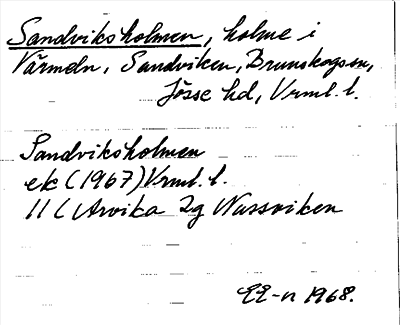 Sandviksholmen, holme i
Värmeln, Sandviken, Brunskogs sn,
Jösse hd, Vrml. l.
Sandviksholmen
ek (1967) Vrml. l.
11C Arvika 2g Nussviken
EE-n 1968.